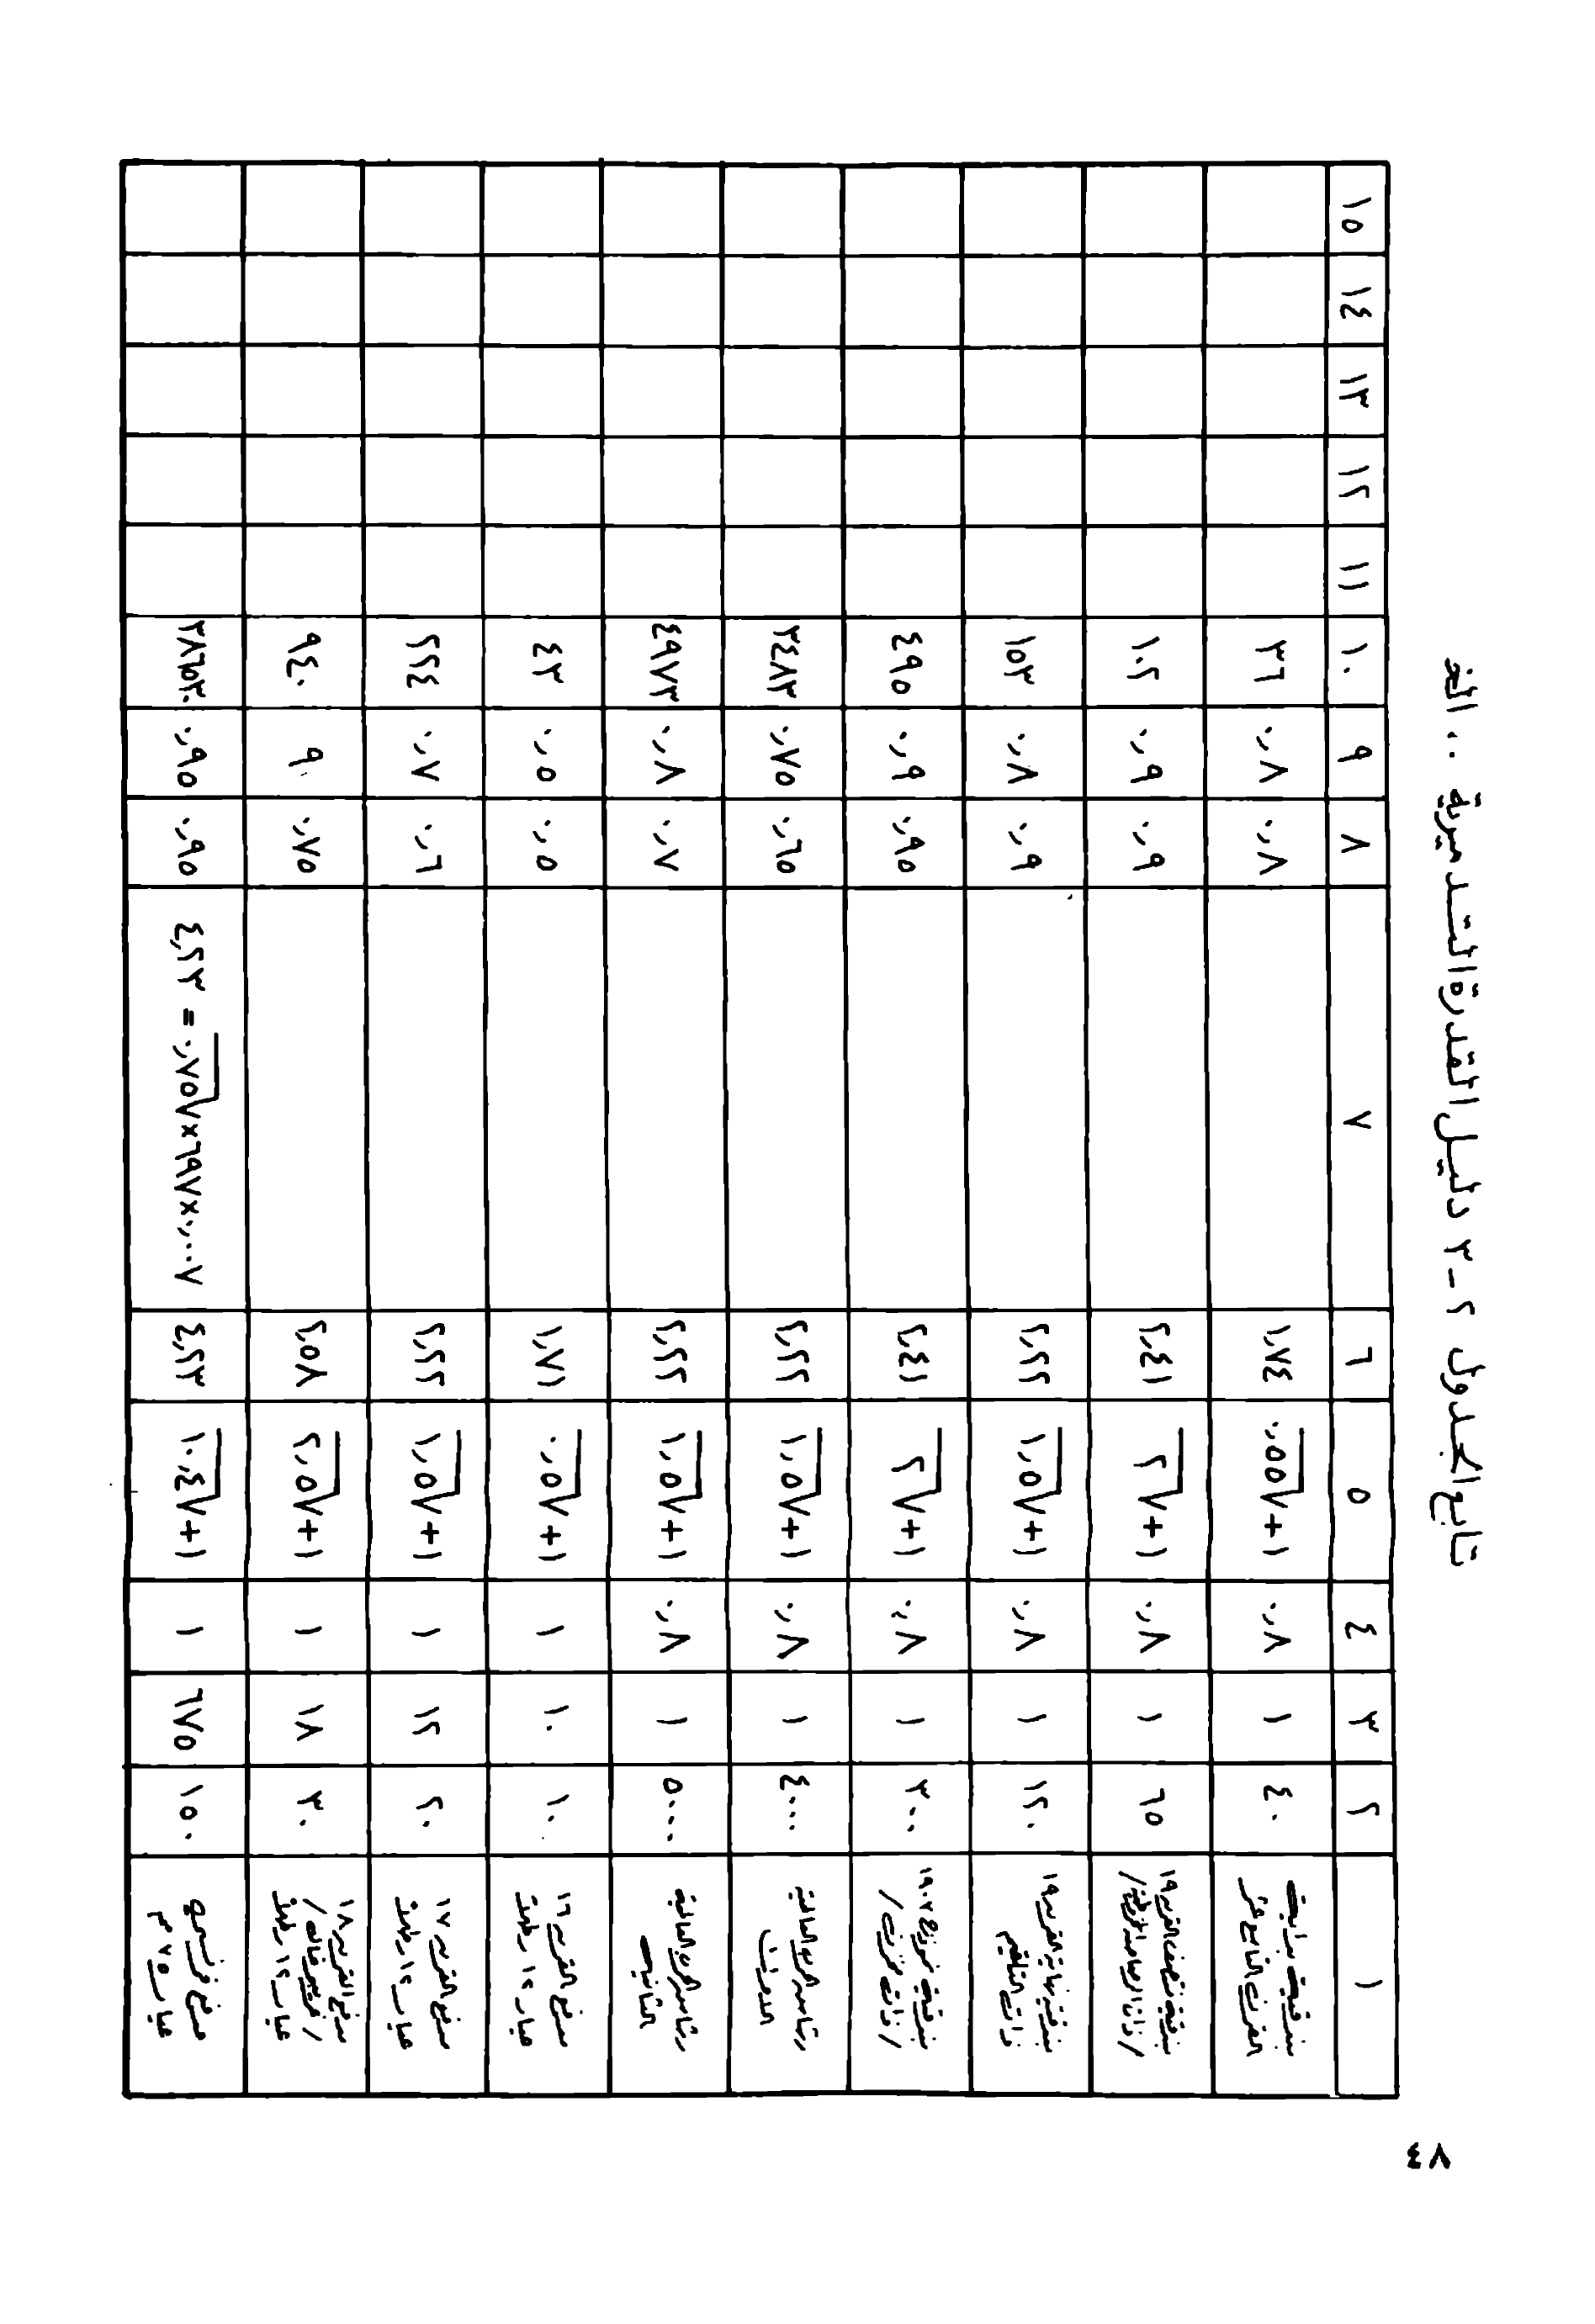 تابع الجدول ٢ - ٣ دليل القدرة التدميرية .. الخ
١ ٢ ٣ ٤ ٥ ٦ ٧ ٨ ٩ ١٠ ١١ ١٢ ١٣ ١٤ ١٥
بندقية بداية القرن التاسع عشر ٤٠ ١ ٠,٨ ١+√٠,٥٥ ١,٧٤ ٠,٨ ٠,٨ ٣٦
بندقية منتصف القرن ١٩ /ذات الرصاصة المخروطية/ ٦٥ ١ ٠,٨ ١+√٢ ٢,٤١ ٠,٩ ٠,٩ ١٠٢
بندقية نهاية القرن ١٩ ذات التلقيم ١٢٠ ١ ٠,٨ ١+√١,٥ ٢,٢٢ ٠,٩ ٠,٨ ١٥٣
بندقية نموذج ١٩٠٢ /ذات مخزن/ ٣٠٠ ١ ٠,٨ ١+√٢ ٢,٤١ ٠,٩٥ ٠,٩ ٤٩٥
رشاش الحرب العالمية ٤٠٠٠ ١ ٠,٨ ١+√١,٥ ٢,٢٢ ٠,٦٥ ٠,٧٥ ٣٤٨٣
رشاش الحرب العالمية الثانية ٥٠٠٠ ١ ٠,٨ ١+√١,٥ ٢,٢٢ ٠,٧ ٠,٨ ٤٩٧٣
مدفع القرن ١٦ عيار ١٢ رطل ١٠ ١٠ ١ ١+√٠,٥ ١,٧١ ٠,٥ ٠,٥ ٤٣
مدفع القرن ١٧ عيار ١٢ رطل ٢٠ ١٢ ١ ١+√١,٥ ٢,٢٢ ٠,٦ ٠,٧ ٢٢٤
مدفع القرن ١٨ /غريبوفال/ عيار ١٢ رطل ٣٠ ١٨ ١ ١+√٢,٥ ٢,٥٨ ٠,٧٥ ٩ ٩٤٠
مدفع فرنسي عيار ٧٥ مم ١٥٠ ٦٧٥ ١ ١+√١٠,٤ ٤,٢٣ ٠,٠٠٧×٦٩٧×√٠,٧٥ = ٤,٢٣ ٠,٩٥ ٠,٩٥ ٣٨٦٥٣٠
٨٤